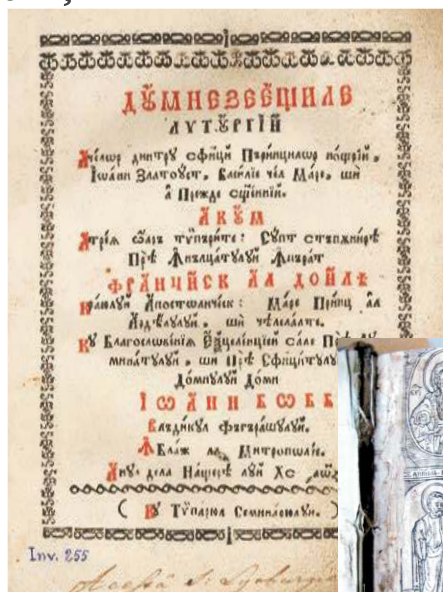 ДꙊМНЕЗЕЕЩИЛЕ
ЛУТꙊРГІЙ
Ачелѡр динтру сфинци Пъринцилѡр нощрїй,
Іѡанн Златоуст, Василїе чел Маре, ши
а Прежде сщїенїй.
АКꙊМ
Атрїа ѡаръ тѵпърите: Супт стъпѫнирѣ
Прѣ Ꙟнълцатулуй Ꙟпърат
ФРАНЧИСК АЛ ДОЙЛѢ
Краюлуй Апостолическ: Маре Принц ал
Ардѣлулуй, ши челелалте.
Ку Благословенїа Еѯцеленцїей сале Прѣ Лу
минатулуй, ши Прѣ Сфинцитулу
Домнулуй Домн
ІѠАНН БѠББ
Владикул Фъгърашулуй.
Ꙟ Блаж ла Митрополїе.
Анул дела Нащерѣ луй Хс
( Ку Тѵпарюл Семинарюлуй. )
Inv. 255